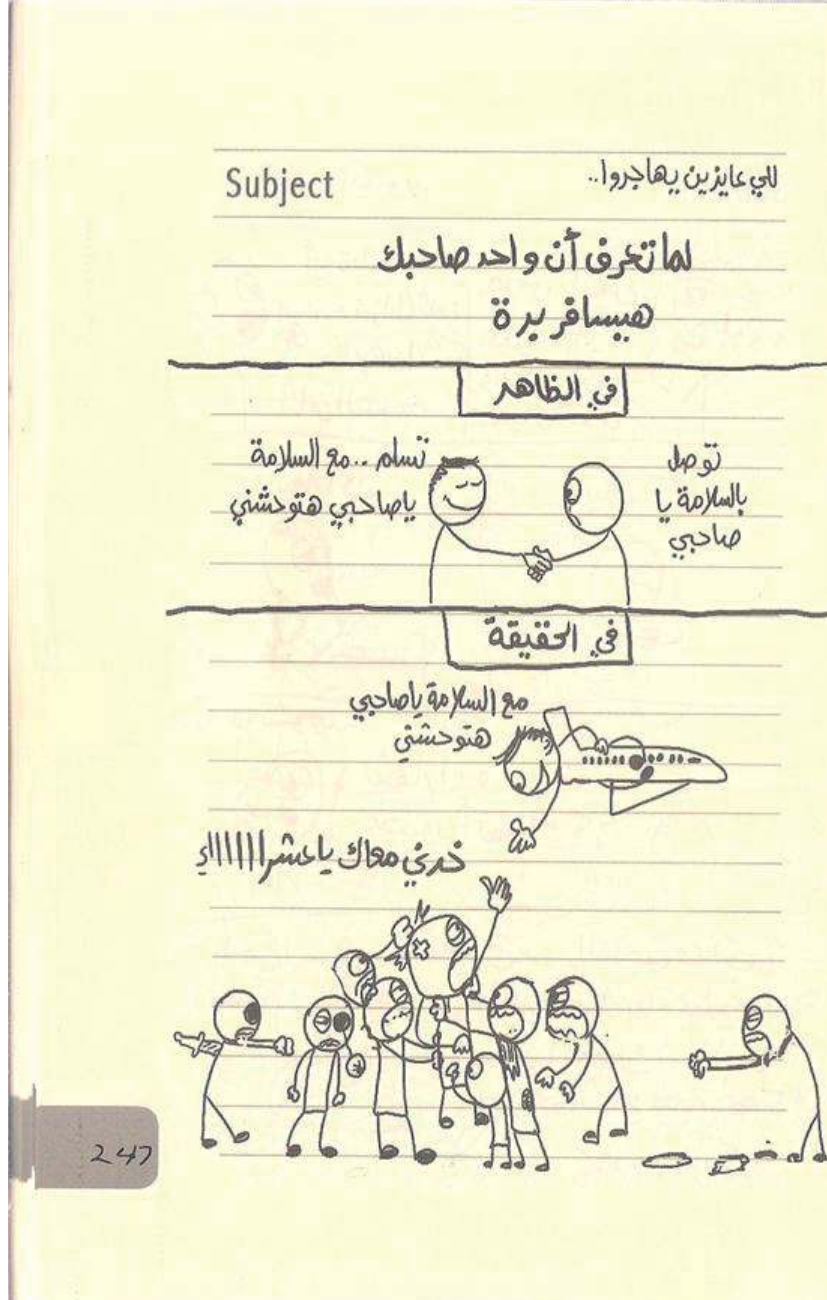 Subject
للي عايزين يهاجروا..
لما تعرف أن واحد صاحبك
هيسافر برة
في الظاهر
توصل
بالسلامة يا
صاحبي
تسلم .. مع السلامة
ياصاحبي هتوحشني
في الحقيقة
مع السلامة ياصاحبي
هتوحشني
خدني معاك ياعشرااااااي
247